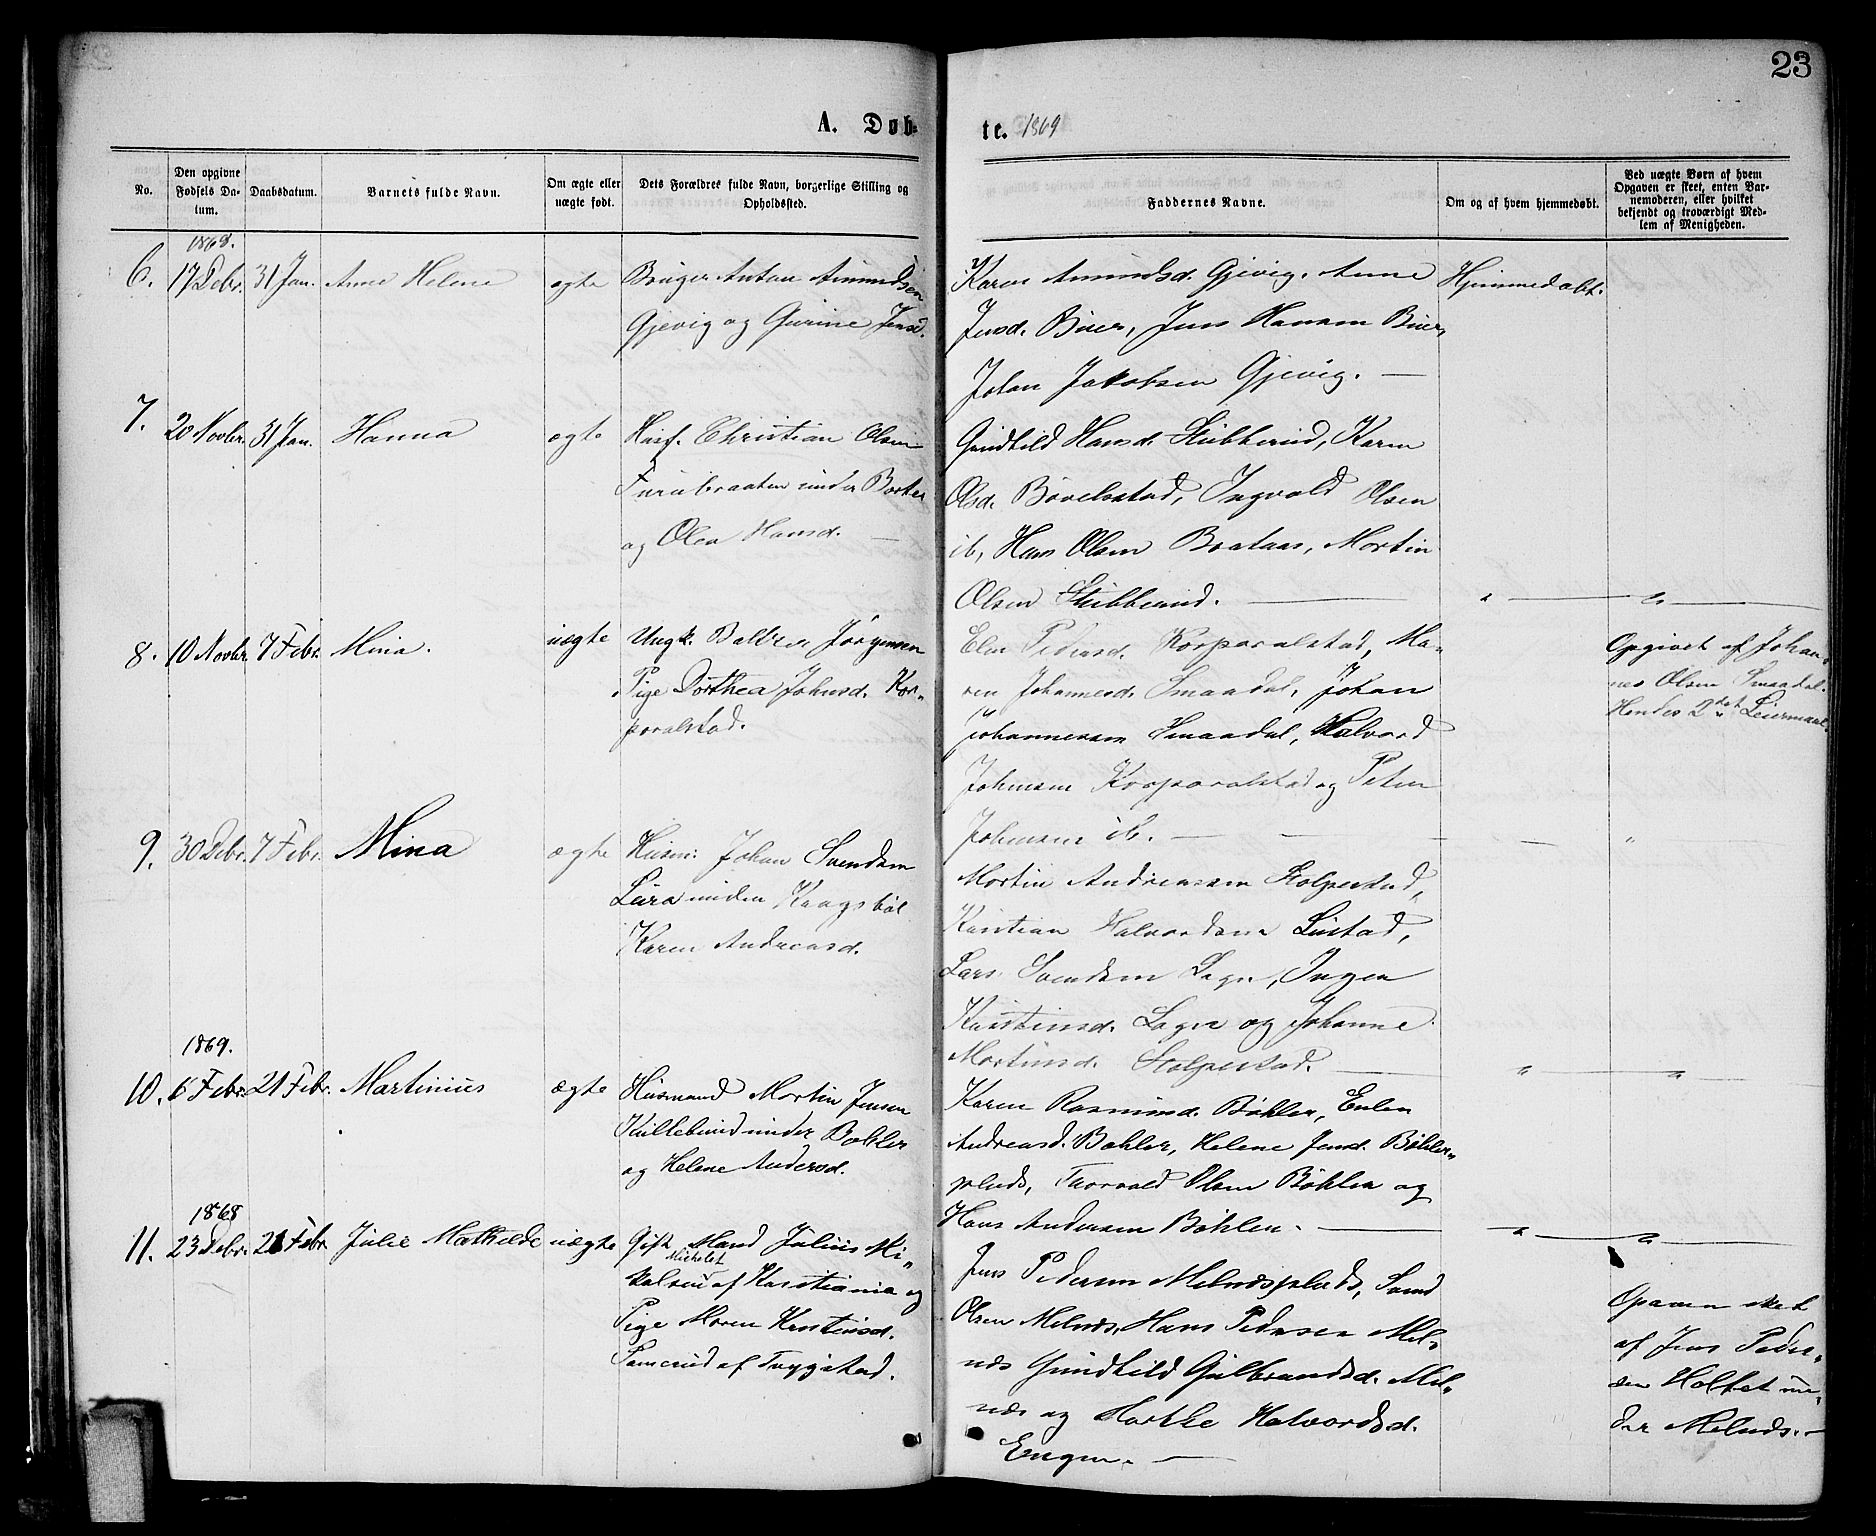 23
A. Døb-
te. 1869
No.
Den opgivne Fødsels Da-
tum.
Daabsdatum.
Barnets fulde Navn.
Om ægte eller
uægte født.
Dets Forældres fulde Navn, borgerlige Stilling og
Opholdssted.
Faddernes Navne.
Om og af hvem hjemmedøbt.
Ved uægte Børn af hvem
Opgaven er skeet, enten Bar-
nemoderen, eller hvilket
bekjendt og troværdigt Med-
lem af Menigheden.
1868.
6. 17 Debr. 31 Jan. Anne Helene ægte
Bruger Anton Amundsen
Gjevig og Gurine Jensd.
Karen Amundsd. Gjevig, Anne
Jensd. Buer, Jens Hansen Buer,
Johan Jakobsen Gjevig. —
Hjemmedøbt.
7. 20 Novbr. 31 Jan. Hanna ægte
Husf. Christian Olsen
Furubraaten under
og Olea Hansd. —
Gundhild Hansd. Stubberud, Karen
Olsd. Bøvelstad, Ingvald Olsen
ib, Hans Olsen Brataas, Martin
Olsen Stubberud. —
" — " —
8. 10 Novbr. 7 Febr. Mina. uægte
Ungk. Jørgensen
Pige Dorthea Johnsd. Kor-
poralstad.
Elen Pedersd. Korporalstad, Ma-
ren Johannesd. Smaadal, Johan
Johannesen Smaadal, Halvord
Johnsen Korporalstad og Peter
Johnsen ib. —
Opgivet af Johan-
nes Olsen Smaadal.
Hendes 2det Leiermaal.
— "
9. 30 Debr. 7 Febr. Mina ægte
Husm: Johan Svendsen
Leira under
Karen Andreasd.
Martin Andreasen Stolpestad,
Kristian Halvordsen Lustad,
Lars Svendsen Inger
Kristensd. og Johanne
Martinsd. Stolpestad. —
" — "
1869.
10. 6 Febr. 21 Febr. Martinius ægte
Husmand Martin Jensen
Kullebund under Bøhler
og Helene Andersd.
Karen Rasmusd. Bøhler,
Andreasd. Bøhler, Helene Jensd. Bøhler-
plads, Thorvald Olsen Bøhler og
Hans Andersen Bøhler. —
" — " —
1868
11. 23 Debr. 21 Febr. Julie Mathilde uægte
Gift Mand Julius Mi-
Michelet
kalsen af Kristiania og
Pige Maren Kristensd.
af Trygstad.
Jens Pedersen Melnæsplads, Svend
Olsen Melnæs, Hans Pedersen Mel-
næs Gundhild Gulbrandsd. Mel-
næs og Halvordsd.
Engen. —
Opgaven skeet
af Jens Peder-
sen Holtet un-
der Melnæs. —